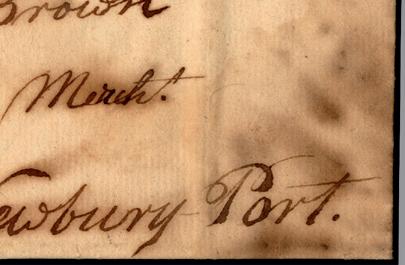 Brown
Mercht.
ewbury Port.